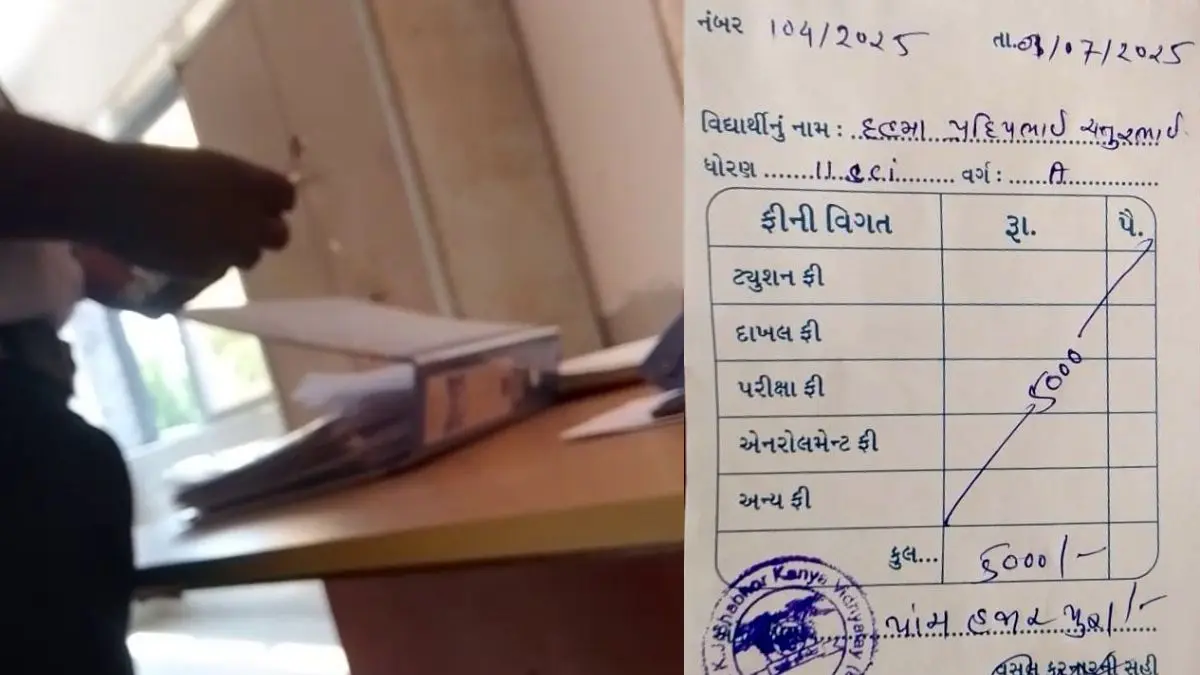 નંબર 104/2025 તા. 01/07/2025
વિદ્યાર્થીનું નામ :
ધોરણ 11 sci વર્ગ : A
ફીની વિગત રૂા. પૈ.
ટ્યુશન ફી
દાખલ ફી
પરીક્ષા ફી
5000
એનરોલમેન્ટ ફી
અન્ય ફી
કુલ... 5000/-
પાંચ હજાર પુરા/-
K.J. Bhabhar Kanya Vidhyalay
વસુલ કરનારની સહી